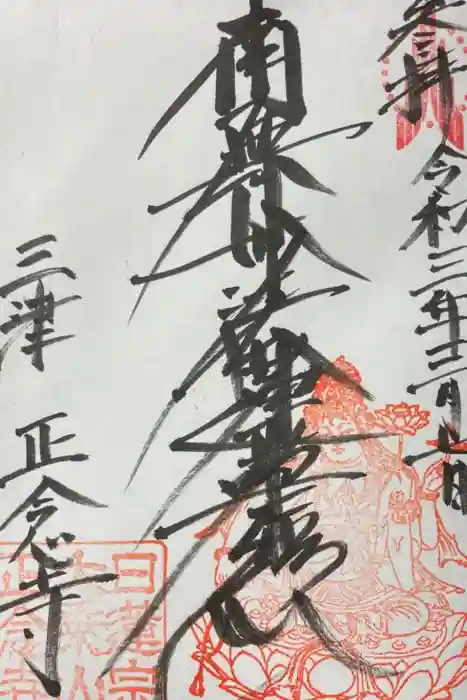 参拝 令和三年十二月 日
南無妙法蓮華経
三津 正念寺
日蓮宗
正念寺